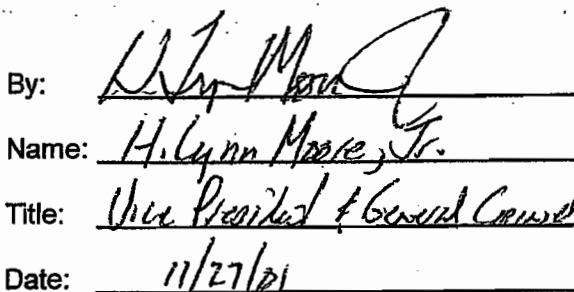 By: H. Lynn Moore Jr
Name: H. Lynn Moore, Jr.
Title: Vice President & General Counsel
Date: 11/27/01